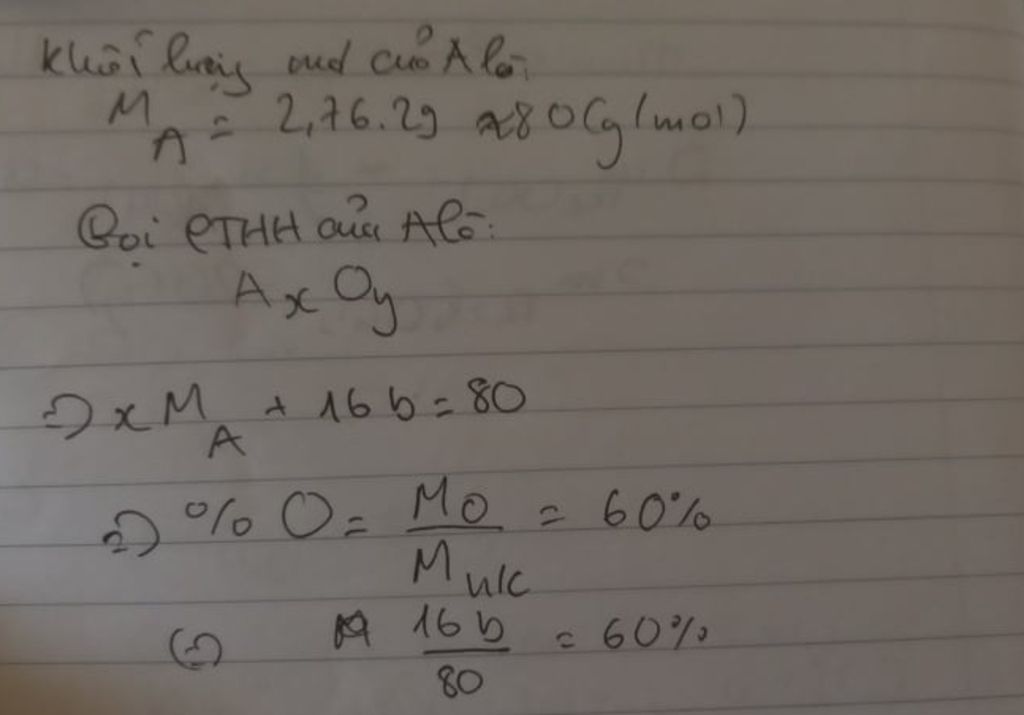 Khối lượng mol của A là:
M_A = 2,76.29 ≈ 80 (g/mol)
Gọi CTHH của A là:
AxOy
=> xM_A + 16b = 80
=> %O = MO / M h/c = 60%
<=> 16b / 80 = 60%